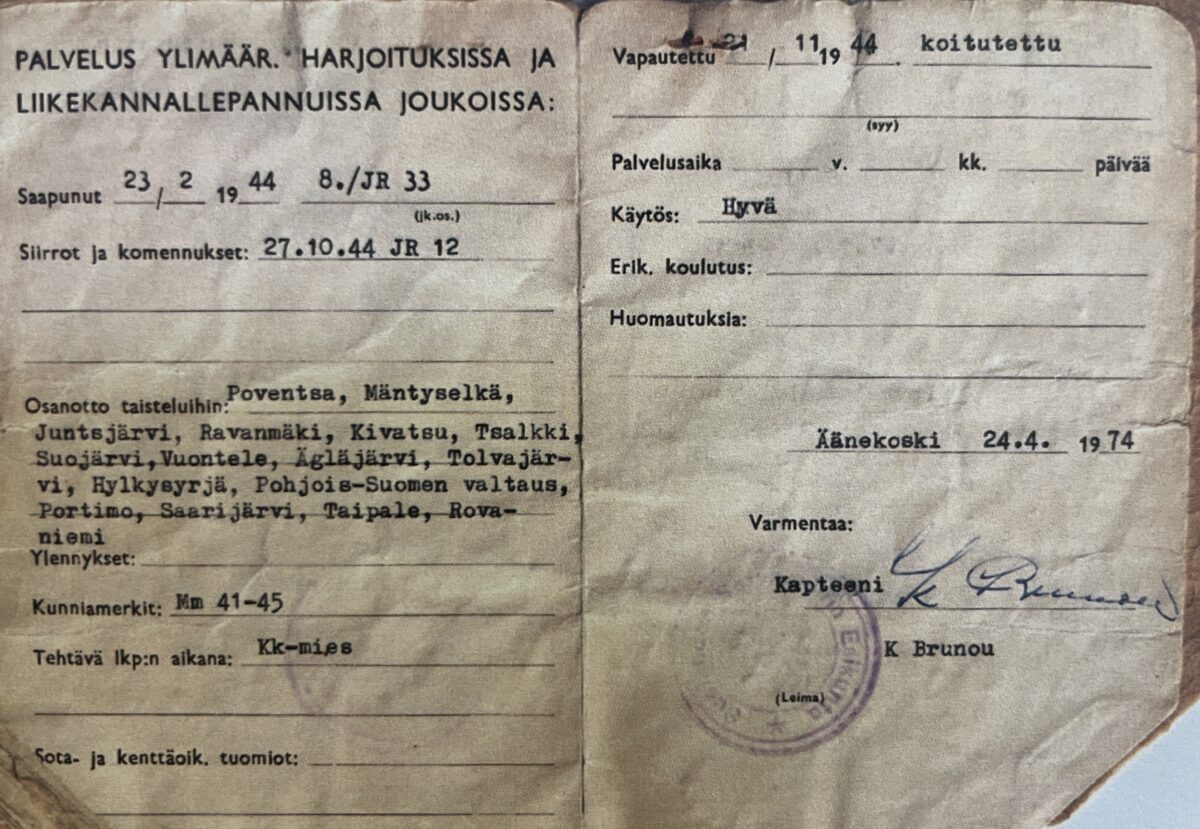 PALVELUS YLIMÄÄR. HARJOITUKSISSA JA
LIIKEKANNALLEPANNUISSA JOUKOISSA:
Saapunut 23 / 2 1944 8./JR 33
(jk.os.)
Siirrot ja komennukset: 27.10.44 JR 12
Osanotto taisteluihin: Poventsa, Mäntyselkä,
Juntsjärvi, Ravanmäki, Kivatsu, Tsalkki,
Suojärvi,Vuontele, Ägläjärvi, Tolvajär-
vi, Hylkysyrjä, Pohjois-Suomen valtaus,
Portimo, Saarijärvi, Taipale, Rova-
niemi
Ylennykset:
Kunniamerkit: Mm 41-45
Tehtävä lkp:n aikana: Kk-mies
Sota- ja kenttäoik. tuomiot:
Vapautettu 21 / 11 1944. koitutettu
(syy)
Palvelusaika v. kk. päivää
Käytös: Hyvä
Erik. koulutus:
Huomautuksia:
Äänekoski 24.4. 1974
Varmentaa:
Kapteeni K Brunou
K Brunou
(Leima)